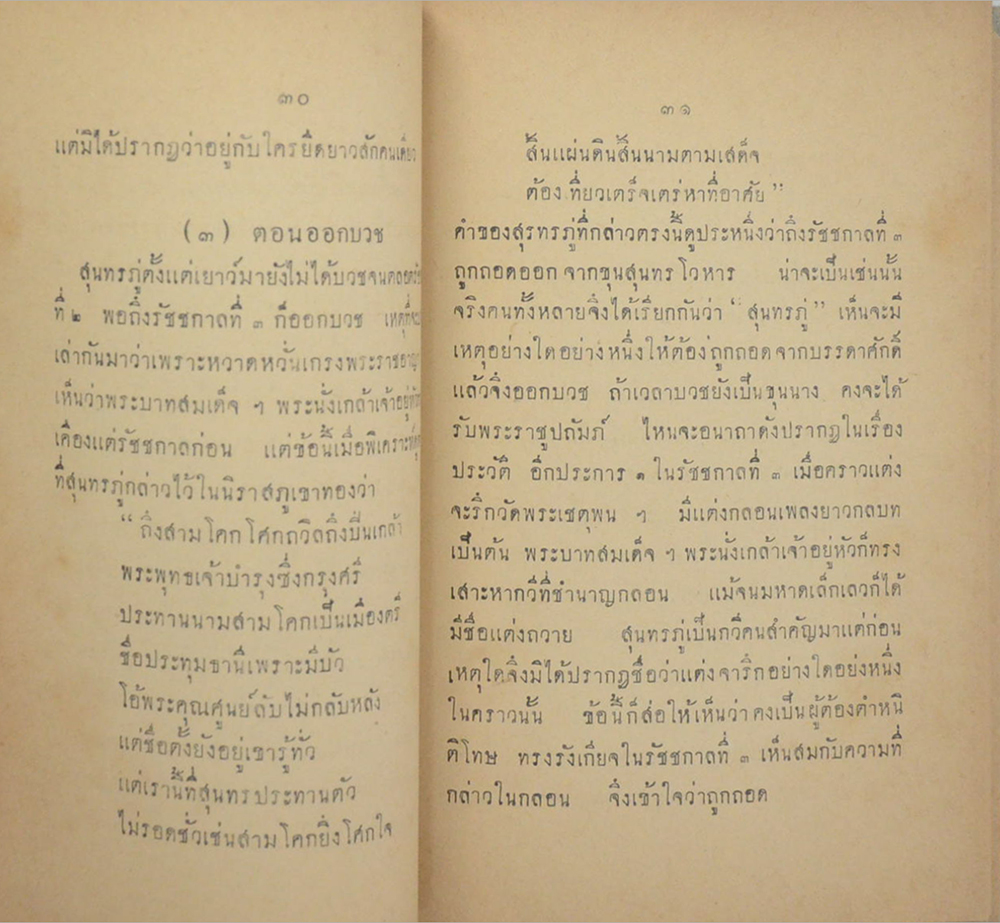 ๓๐
แต่มิได้ปรากฏว่าอยู่กับใครยืดยาวสักคนเดียว
(๓) ตอนออกบวช
สุนทรภู่ตั้งแต่เยาว์มายังไม่ได้บวชจนตลอด
ที่ ๒ พอถึงรัชชกาลที่ ๓ ก็ออกบวช เหตุที่
เล่ากันมาว่าเพราะหวาดหวั่นเกรงพระราชอาญา
เห็นว่าพระบาทสมเด็จ ฯ พระนั่งเกล้าเจ้าอยู่หัว
เคืองแต่รัชชกาลก่อน แต่ข้อนี้เมื่อพิเคราะห์
ที่สุนทรภู่กล่าวไว้ในนิราสภูเขาทองว่า
“ถึงสามโคกโศกถวิลถึงปิ่นเกล้า
พระพุทธเจ้าบำรุงซึ่งกรุงศรี
ประทานนามสามโคกเป็นเมืองตรี
ชื่อประทุมธานีเพราะมีบัว
โอ้พระคุณศูนย์ลับไม่กลับหลัง
แต่ชื่อตั้งยังอยู่เขารู้ทั่ว
แต่เรานี้ที่สุนทรประทานตัว
ไม่รอดชั่วเช่นสามโคกยิ่งโศกใจ
๓๑
สิ้นแผ่นดินสิ้นนามตามเสด็จ
ต้องเที่ยวเตร็จเตร่หาที่อาศัย”
คำของสุรทรภู่ที่กล่าวตรงนี้ดูประหนึ่งว่าถึงรัชชกาลที่ ๓
ถูกถอดออกจากขุนสุนทรโวหาร น่าจะเป็นเช่นนั้น
จริงคนทั้งหลายจึงได้เรียกกันว่า “สุนทรภู่” เห็นจะมี
เหตุอย่างใดอย่างหนึ่งให้ต้องถูกถอดจากบรรดาศักดิ์
แล้วจึงออกบวช ถ้าเวลาบวชยังเป็นขุนนาง คงจะได้
รับพระราชูปถัมภ์ ไหนจะอนาถาดังปรากฏในเรื่อง
ประวัติ อีกประการ ๑ ในรัชชกาลที่ ๓ เมื่อคราวแต่ง
จะรึกวัดพระเชตุพน ฯ มีแต่งกลอนเพลงยาวกลบท
เป็นต้น พระบาทสมเด็จ ฯ พระนั่งเกล้าเจ้าอยู่หัวก็ทรง
เสาะหากวีที่ชำนาญกลอน แม้จนมหาดเล็กเลวก็ได้
มีชื่อแต่งถวาย สุนทรภู่เป็นกวีคนสำคัญมาแต่ก่อน
เหตุใดจึงมิได้ปรากฏชื่อว่าแต่งจารึกอย่างใดอย่งหนึ่ง
ในคราวนั้น ข้อนี้ก็ส่อให้เห็นว่าคงเป็นผู้ต้องตำหนิ
ติโทษ ทรงรังเกียจในรัชชกาลที่ ๓ เห็นสมกับความที่
กล่าวในกลอน จึงเข้าใจว่าถูกถอด